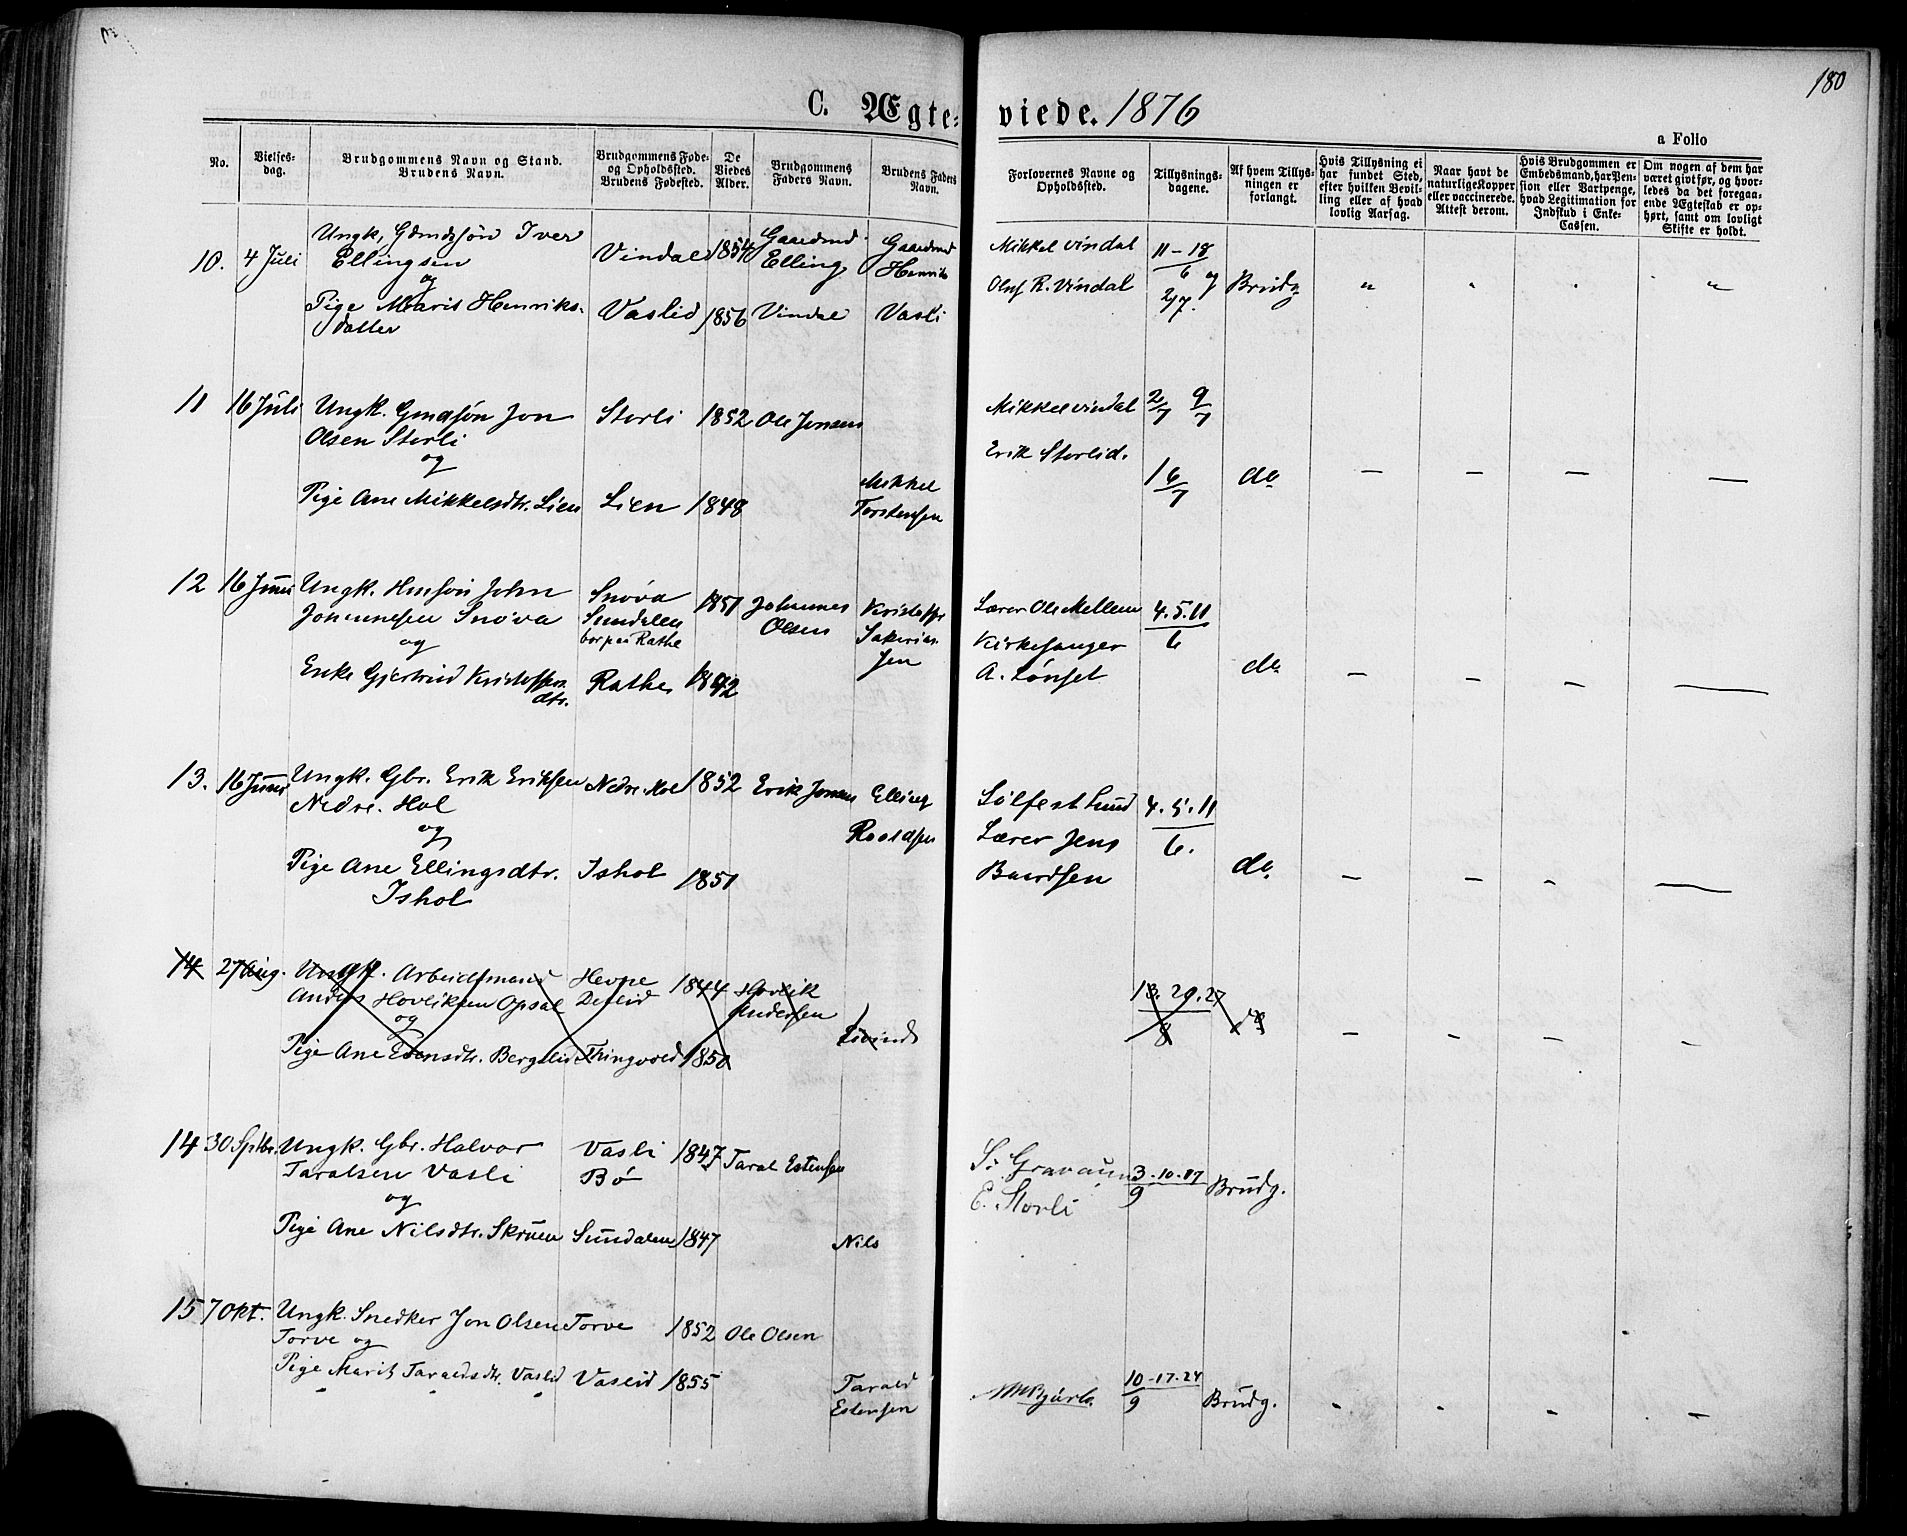 180
C. Ægteviede. 1876
a Folio
No.
Vielsesdag.
Brudgommens Navn og Stand.
Brudens Navn.
Brudgommens Føde-
og Opholdssted.
Brudens Fødested.
De
Viedes
Alder.
Brudgommens
Faders Navn.
Brudens Faders
Navn.
Forlovernes Navne og
Opholdssted.
Tillysnings-
dagene.
Af hvem Tillys-
ningen er
forlangt.
Hvis Tillysning ei
har fundet Sted,
efter hvilken Bevil-
ling eller af hvad
lovlig Aarsag.
Naar havt de
naturlige Kopper
eller vaccinerede.
Attest derom.
Hvis Brudgommen er
Embedsmand, har Pen-
sion eller Vartpenge,
hvad Legitimation for
Indskud i Enke-
Cassen.
Om nogen af dem har
været gift før, og hvor-
ledes da det foregaa-
ende Ægteskab er op-
hørt, samt om lovligt
Skifte er holdt.
10. 4 Juli Ungk. Iver Vindal 1854 Gaardmd. Gaardmd Mikkel Vindal 11-18/6 og
Ellingsen Elling Henrik Oluf R. Vindal 2/7. Brudg
og
Pige Marit Henriks- Vaslid 1856 Vindal Vasli
datter
11 16 Juli Ungk. Gmdsøn Jon Storli 1852 Ole Jonsen Mikkel Vindal 2/7 9/7
Olsen Storli Erik Storlid.
og 16/7 do — — — —
Pige Ane Mikkelsdtr. Lien Lien 1848 Mikkel
Torstensen
12 16 Juni Ungk. Husm John Snøva 1851 Johannes Kristoffer Lærer Ole Mellem 4.5.11/6
Johannesen Snøva Sundalen Olsen Sakarias- Kirkesanger
og bor paa Rathe sen A. Lønset do — — — —
Enke Gjertrud Kristoffers Rathe 1842
dtr.
13. 16 Juni Ungk. Gbr. Erik Eriksen Nedre Hol 1852 Erik Jonsen Elling Sølfest Lund 4.5.11/6.
Nedre. Hol Roaldsen Lærer Jens
og Baardsen do — — — —
Pige Ane Ellingsdtr. Ishol 1851
Ishol
14 27 Aug. Ungk. Arbeidsmand Hevne 1844 Hovlik 13.20.27/8 do
Anders Hovliksen Opsal Andersen
og
Pige Ane Bergslid Thingvold 1850 Eivind — — — —
14 30 Sptbr. Ungk. Gbr. Halvor Vasli 1847 Taral Estensen 3-10-17/9 Brudg.
Taralsen Vasli Bø E. Storli
og
Pige Ane Nilsdtr. Skruen Sundalen 1847 Nils
15 7 Okt. Ungk. Snedker Jon Olsen Torve 1852 Ole Olsen
Torve og
Pige Marit Taraldsdtr. Vaslid Vaslid 1855 Tarald 10-17-24/9 Brudg.
Estensen